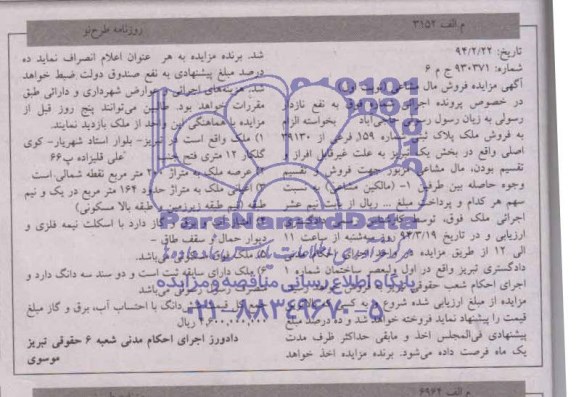 م الف ۳۱۵۲
روزنامه طرح‌نو
تاریخ: ۹۴/۲/۲۲
شماره: ۹۳۰۳۷۱ ج م ۶
آگهی مزایده فروش مال مشاعی
در خصوص پرونده اجرای فوق به نفع نازدار
رسولی به زیان رسول رسولی حاجی‌آباد بخواسته الزام
به فروش ملک پلاک ثبتی شماره ۱۵۹ فرعی از ۲۹۱۳۰
اصلی واقع در بخش یک تبریز به علت غیرقابل افراز و
تقسیم بودن، مال مشاعی مزبور جهت فروش و تقسیم
وجوه حاصله بین طرفین ۱- (مالکین مشاعی) به نسبت
سهم هر کدام و پرداخت مبلغ ... ریال از بابت نیم عشر
اجرائی ملک فوق، توسط کارشناس رسمی دادگستری
ارزیابی و در تاریخ ۹۴/۳/۱۹ روز سه‌شنبه از ساعت ۱۱
الی ۱۲ از طریق مزایده در واحد اجرای احکام مدنی
دادگستری تبریز واقع در اول ولیعصر ساختمان شماره ۱
اجرای احکام شعب حقوقی
مزایده از مبلغ ارزیابی شده شروع و به کسی که بالاترین
قیمت را پیشنهاد نماید فروخته خواهد شد و ده درصد مبلغ
پیشنهادی فی‌المجلس اخذ و مابقی حداکثر ظرف مدت
یک ماه فرصت داده می‌شود. برنده مزایده اخذ خواهد
شد. برنده مزایده به هر عنوان اعلام انصراف نماید ده
درصد مبلغ پیشنهادی به نفع صندوق دولت ضبط خواهد
شد. هزینه‌های اجرائی و عوارض شهرداری و دارائی طبق
مقررات خواهد بود. طالبین می‌توانند پنج روز قبل از
مزایده با هماهنگی این واحد از ملک بازدید نمایند.
۱) ملک واقع است در تبریز- بلوار استاد شهریار- کوی
گلکار ۱۲ متری فتح علی قلیزاده پ ۶۶
۲) عرصه ملک به متراژ متر مربع نقطه شمالی است
۳) اعیان ملک به متراژ حدود ۱۶۴ متر مربع در یک و نیم
طبقه (نیم طبقه زیرزمین و طبقه بالا مسکونی)
۴) آب و برق و گاز دارد با اسکلت نیمه فلزی و
دیوار حمال و سقف طاق -
۵) ملک می‌باشد.
۶) پلاک دارای سابقه ثبت است و دو سند سه دانگ دارد و
می‌باشد
جمع کل قیمت شش‌دانگ با احتساب آب، برق و گاز مبلغ
ریال
دادورز اجرای احکام مدنی شعبه ۶ حقوقی تبریز
موسوی
ParsNamadData
پایگاه اطلاع رسانی مناقصه و مزایده
۰۲۱-۸۸۳۴۹۶۷۰-۵
م الف ۶۹۶۴